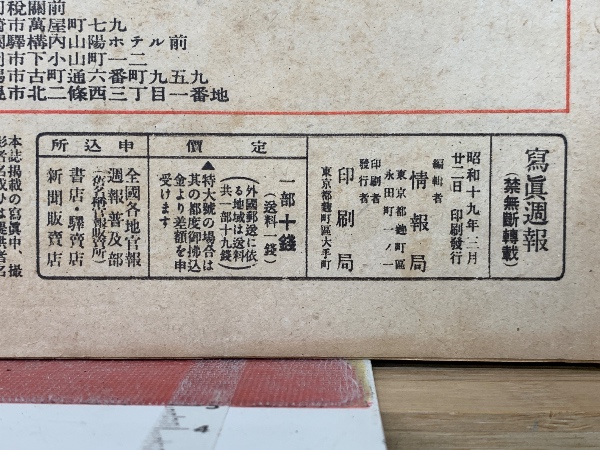 税關前
市萬屋町七九
驛構內山陽ホテル前
市下小山町一二
市古町通六番町九五九
市北二條西三丁目一番地
寫眞週報
(禁無斷轉載)
昭和十九年三月
廿二日 印刷發行
編輯者
情報局
東京都麴町區
永田町一ノ一
印刷者
發行者
印刷局
東京都麴町區大手町
定價
一部十錢
(送料一錢)
外國郵送に依
る地域は送料
共一部十九錢
▲特大號の場合は
其の都度御拂込
金より差額を申
受けます
申込所
全國各地官報
週報普及部
(舊名稱官報販賣所)
書店・驛賣店
新聞販賣店
本誌揭載の寫眞中、撮
影者名或ひは提供者名